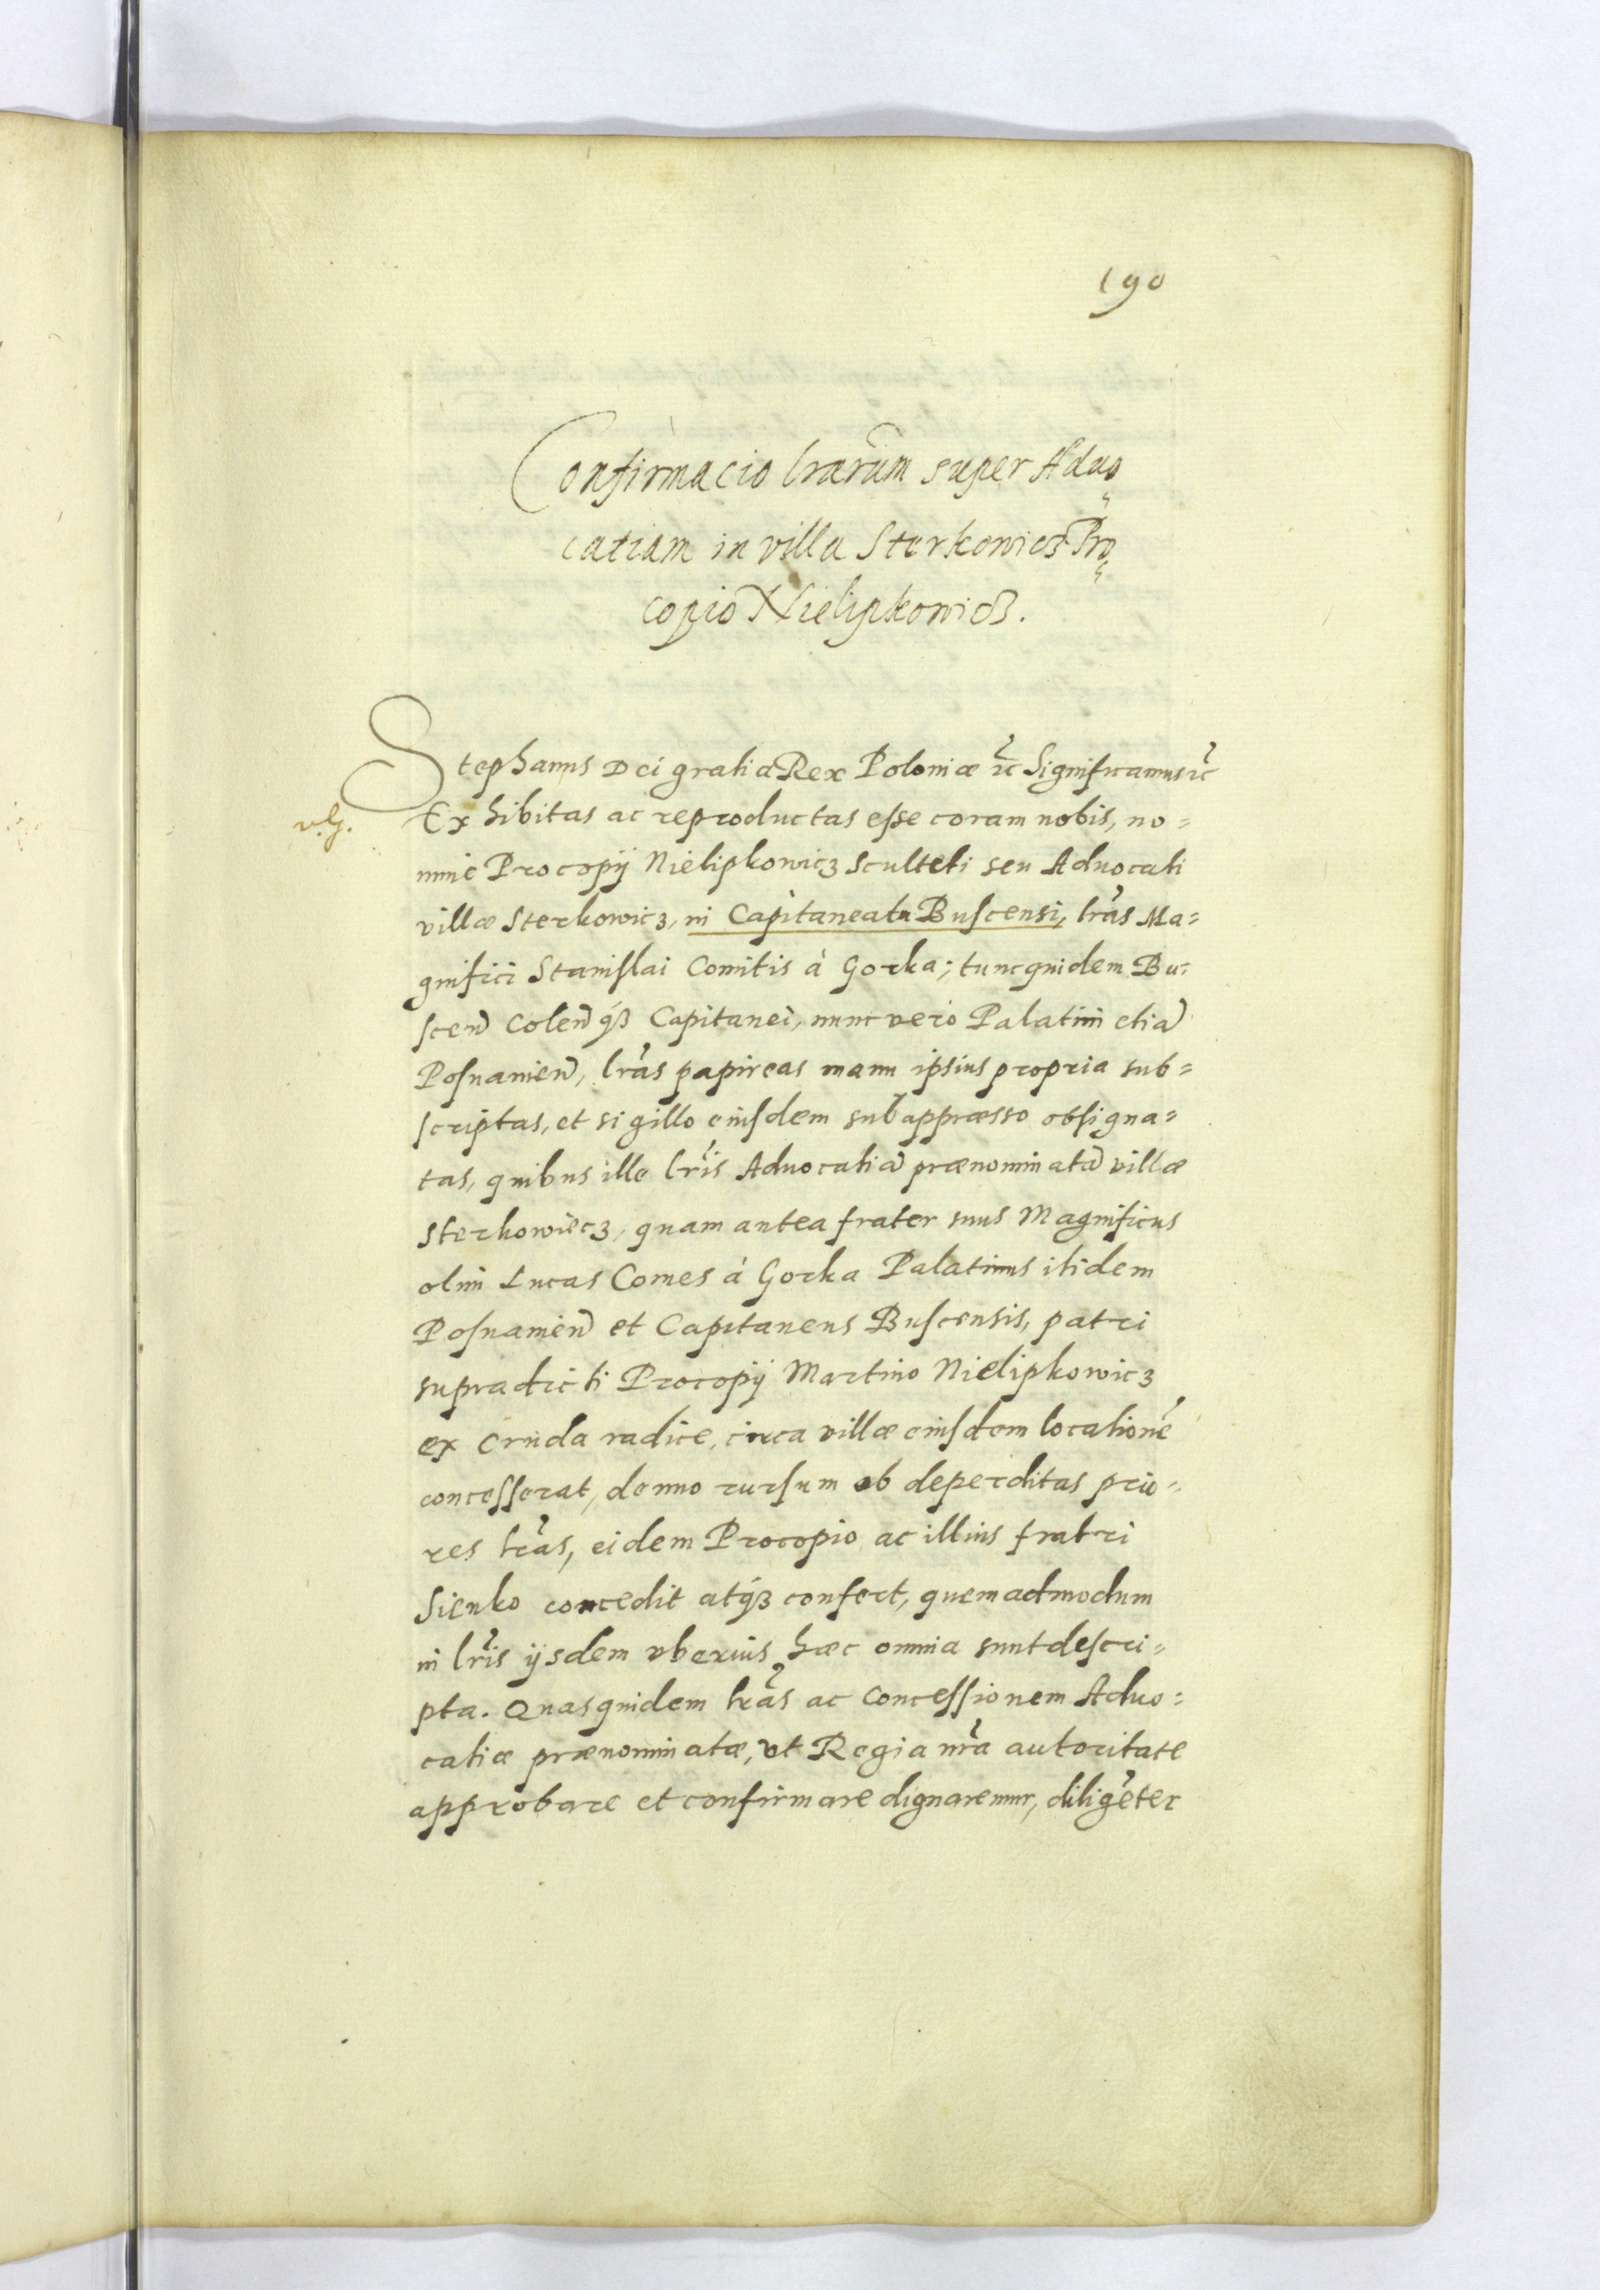 190
Confirmacio lrarum super Aduo
catiam in villa Sterkowicz Pro
copio Nielipkowicz.
Stephanus Dei gratia Rex Poloniæ etc Significamus etc
Exhibitas ac reproductas esse coram nobis, no=
mine Procopÿ Nielipkowicz Sculteti seu Aduocati
villæ Sterkowicz, in Capitaneatu Buscensi, lras Ma=
gnifici Stanislai Comitis à Gorka; tunc quidem Bu=
scen Colenq3 Capitanei, nunc vero Palatini etia
Posnanien, lras papireas manu ipsius propria sub=
scriptas, et sigillo eiusdem subappræsso obsigna=
tas, quibus ille lris Aduocatia prænominata villæ
Sterkowicz, quam antea frater suus Magnificus
olim Lucas Comes à Gorka Palatinus itidem
Posnanien et Capitaneus Buscensis, patri
supradicti Procopÿ Martino Nielipkowicz
ex cruda radice, circa villæ eiusdem locatione
concesserat, denuo rursum ob deperditas prio=
res lras, eidem Procopio ac illius fratri
Sienko concedit atq3 confert, quemadmodum
v.g.
in lris ijsdem vberius hæc omnia sunt descri=
pta. Quasquidem lras ac concessionem Aduo=
catiæ prænominatæ, vt Regia nra autoritate
approbare et confirmare dignaremur, diligeter